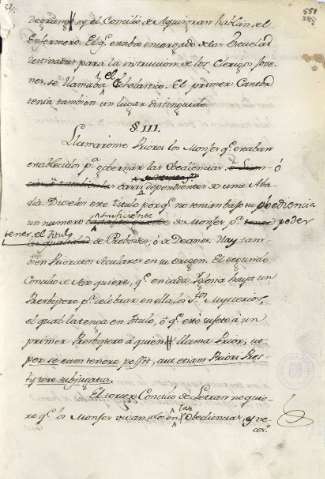 y el Concilio de Aquisgran hablan, el
Enfermero. El q.e estaba encargado de las Escuelas
destinadas para la instruccion de los Clerigos jove-
nes, se llamaba el Scholastico. El primer Cantor
tenia tambien un lugar distinguido.
§ III.
Llamaronse Priores los Monjes q.e estaban
establecidos p.a governar las Obediencias ó
dependientes de una Aba-
dia. Diòseles este titulo por q.e no tenian bajo su obediencia
un numero suficiente de Monjes p.a poder
tener el titulo
de Prebostes, ó de Deanes. Hay tam-
bien Prioratos Seculares en su origen. El segundo
Concilio de quiere, q.e en cada Iglesia haya un
Presbytero p.a celebrar en ella los S.tos Mysterios,
el qual la tenga en titulo, ó q.e esté sujeto à un
primer Presbytero à quien llama Prior, ut
per se eam tenere possit, aut etiam Priori Pres-
bytero subjugata.
El tercer Concilio de Letran no quie-
re q.e los Monjes vivan solos en las Obediencias, y ve-